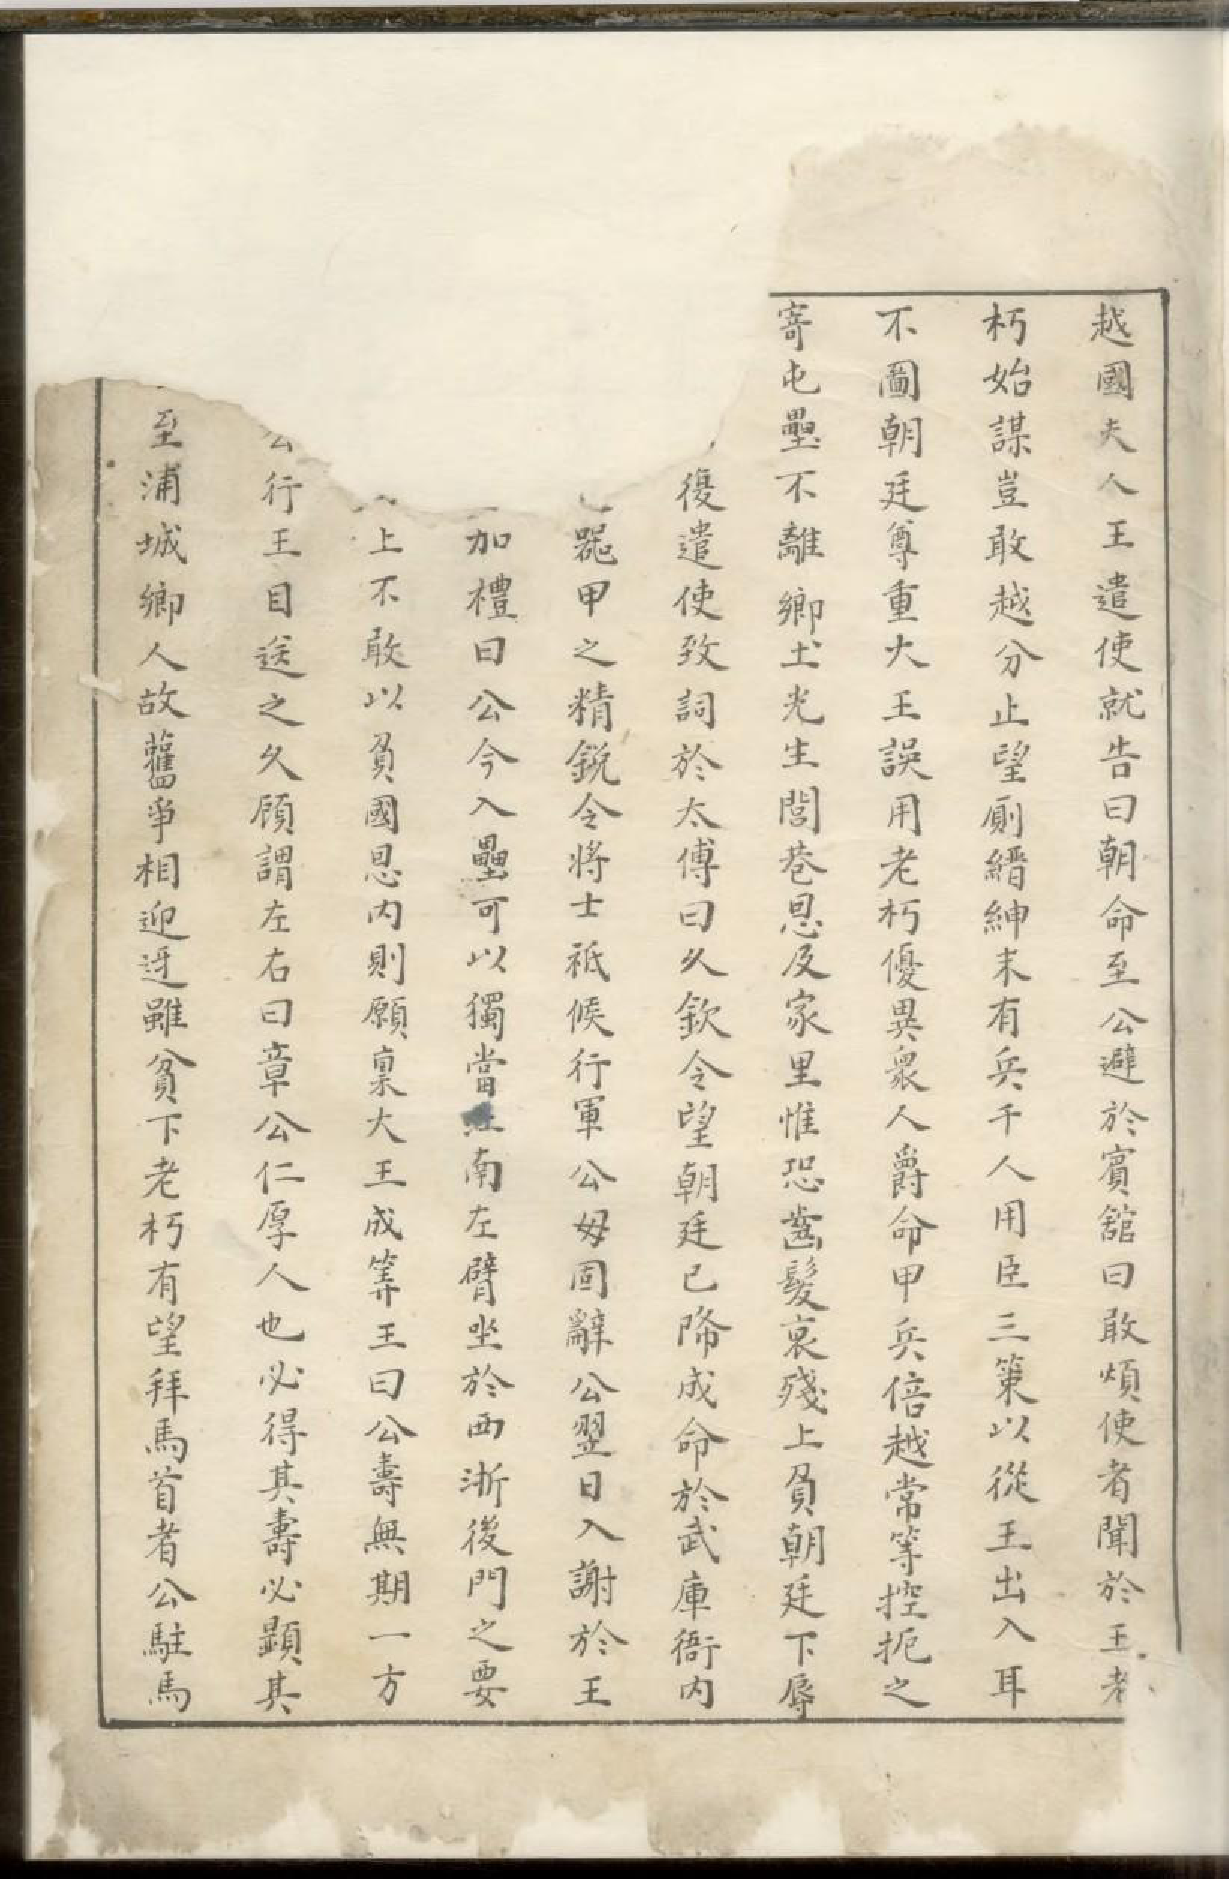 越國夫人王遣使就告曰朝命至公避於賓舘曰敢煩使者聞於王老
朽始謀豈敢越分止望厠縉紳末有兵千人用臣三策以從王出入耳
不圖朝廷尊重大王誤用老朽優異衆人爵命甲兵倍越常等控扼之
寄屯壘不離鄉土光生閭巷恩及家里惟恐齒髮衰殘上負朝廷下辱
復遣使致詞於太傅曰久欽令望朝廷已降成命於武庫衙内
器甲之精銳令將士祗候行軍公毋固辭公翌日入謝於王
加禮曰公今入壘可以獨當南左臂坐於西浙後門之要
上不敢以負國恩内則願稟大王成筭王曰公壽無期一方
公行王目送之久顧謂左右曰章公仁厚人也必得其壽必顯其
至浦城鄉人故舊爭相迎迓雖貧下老朽有望拜馬首者公駐馬